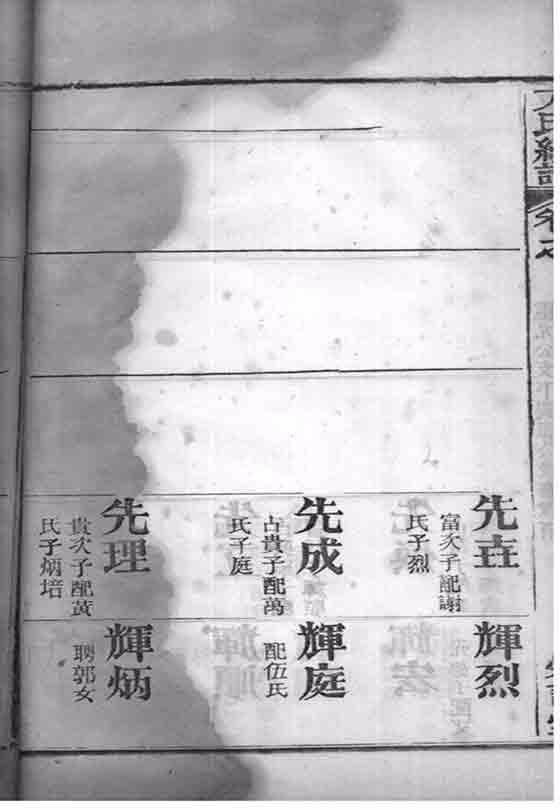 氏
卷
先
富次子配謝
氏子烈
先成
占貴子配萬
氏子庭
先理
貴次子配黃
氏子炳培
輝烈
輝庭
配伍氏
輝炳
聘郭女